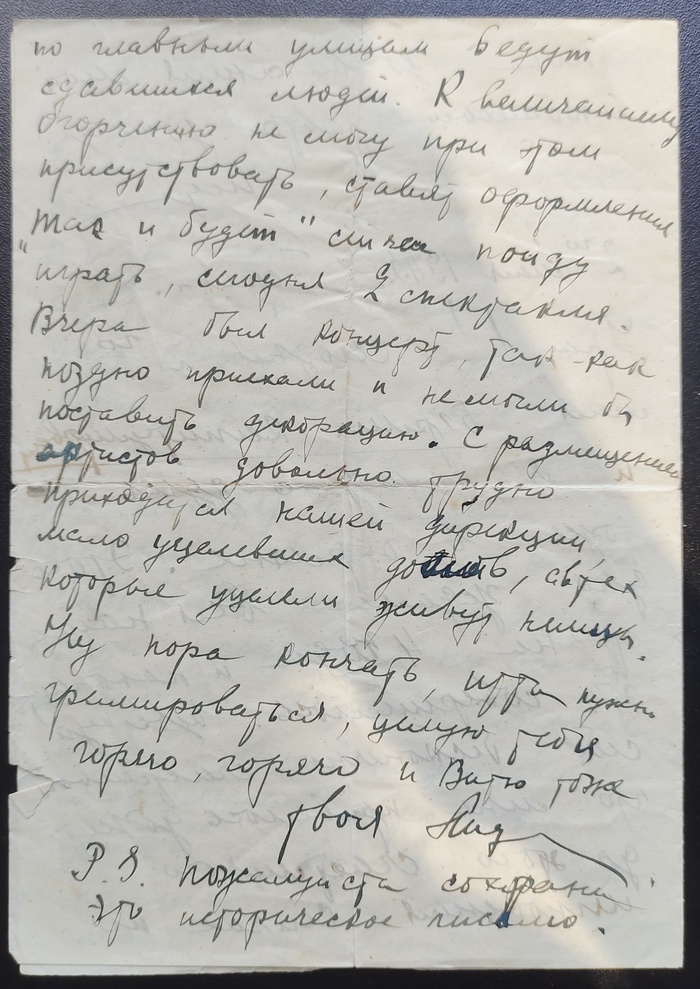 по главным улицам ведут
сдавшихся людей. К величайшему
огорчению не могу при этом
присутствовать, ставят оформления
"Так и будет" сейчас пойду
играть, сегодня 2 спектакля.
Вчера был концерт, так-как
поздно приехали и не могли бы
поставить декорацию. С размещением
артистов довольно трудно
приходится нашей дирекции,
мало уцелевших домов, а в тех
которые уцелели живут немцы.
Ну пора кончать, идти нужно
гримироваться, целую тебя
горячо, горячо и Витю тоже
твоя
P.S. Пожалуйста сохрани
это историческое письмо.